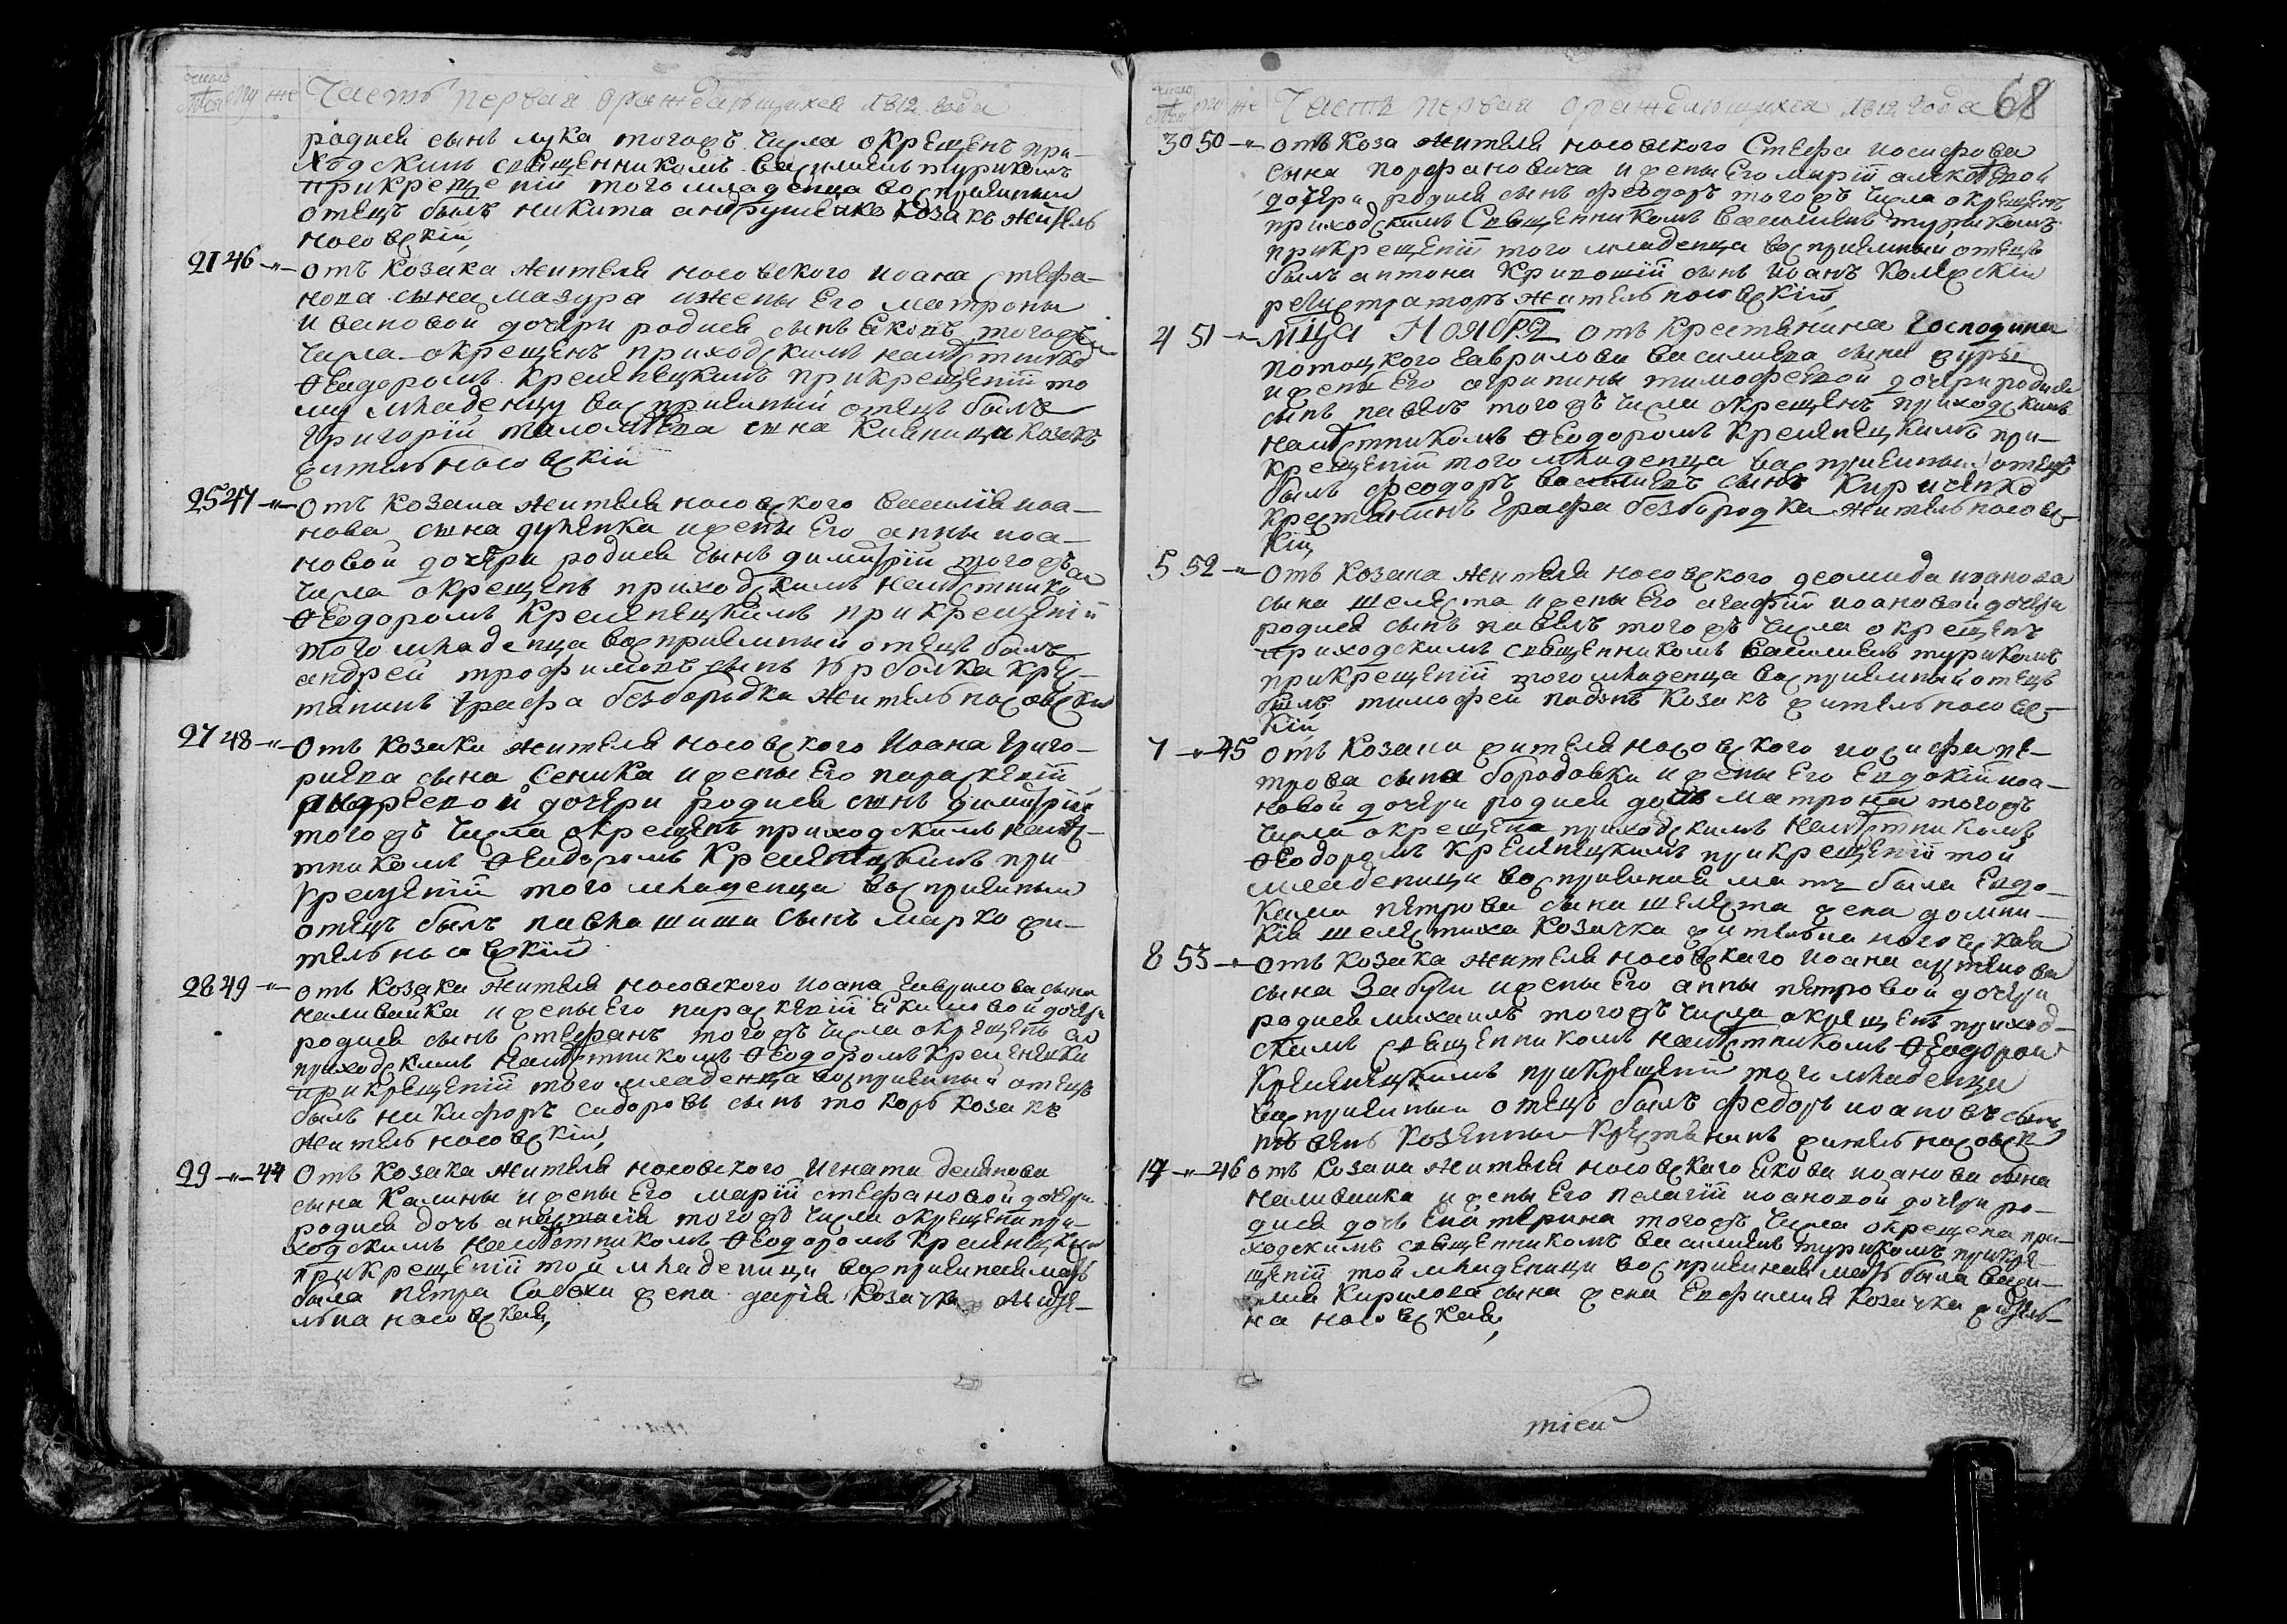 число мѣся му же Часть первая ораждающихся 1812 года
родися сынъ лука тогожъ числа окрещенъ при-
ходскимъ священникомъ василиемъ турикомъ
прикрещенїи того младенца восприемный
отецъ былъ никита андрушенко козакъ житель
носовскїй
21 46 -"- отъ козака жителя носовского иоана стефа-
нова сына мазура ижены его матроны
ивановой дочери родися сынъ яковъ тогожъ
числа окрещенъ приходскимъ намѣстнико
Ѳеодоромъ кременецкимъ прикрещенїи то
му младенцу восприемный отецъ былъ
григорїй сна козакъ
житель носовскїй
25 47 -"- отъ козака жителя носовского василїя иоа-
нова сына дупенка ижены его анны иоа-
новой дочери родися сынъ димитрїй тогожъ
числа окрещенъ приходскимъ намѣстнико
Ѳеодоромъ кременецкимъ прикрещенїи
того младенца восприемный отецъ былъ
андрей трофимовъ сынъ крес-
танинъ графа безбородка житель носовски
27 48 -"- отъ козака жителя носовского иоана григо-
риева сына сеника ижены его параскевїи
андреевой дочери родися сынъ димитрїй
тогожъ числа окрещенъ приходскимъ намѣс-
тникомъ Ѳеодоромъ кременецкимъ при
крещенїи того младенца восприемный
отецъ былъ павла шиша сынъ марко жи-
тель носовскїй
28 49 -"- отъ козака жителя носовского иоана гаврилова сына
наливайка ижены его параскевїи якимовой дочери
родися сынъ стефанъ тогожъ числа окрещенъ
приходскимъ намѣстникомъ Ѳеодоромъ кременецки
прикрещенїи того младенца восприемный отецъ
былъ никифоръ сидоровъ сынъ токорь козакъ
житель носовскїй,
29 -"- 44 отъ козака жителя носовского игнати демянова
сына калины ижены его марїи стефановой дочери
родися дочь анастасїя тогожъ числа окрещена при-
ходскимъ намѣстникомъ Ѳеодоромъ кременецким
прикрещенїи той младеници восприемная мать
была петра сабоки жена дарїя козачка жите-
льна носовская,
число мѣся му же Часть первая ораждающихся 1812 года 68
30 50 -"- отъ коза жителя носовского стефа иосифова
сына порфановича ижены его марїи алексѣевой
дочери родися сынъ феодоръ тогожъ числа окрещенъ
приходскимъ священникомъ василиемъ туркомъ
прикрещенїи того младенца восприемный отецъ
былъ антона кривошїй сынъ иоанъ колежскїй
регистраторъ житель носовскїй,
4 51 -"- мца ноября отъ крестянина господина
потоцкого гаврилова василиева сына дуры
ижены его агрипины тимофеевой дочери родися
сынъ павелъ тогожъ числа окрещенъ приходскимъ
намѣстникомъ Ѳеодоромъ кременецкимъ при-
крещенїи того младенца восприемный отецъ
былъ феодоръ василиевъ сынъ кириенко
крестянинъ графа безбородка житель носовс-
кїй
5 52 -"- отъ козака жителя носовского деомида иванова
сына шелеста ижены его агафїи иоановой дочери
родися сынъ павелъ тогожъ числа окрещенъ
приходскимъ священникомъ василиемъ туркомъ
прикрещенїи того младенца восприемный отецъ
былъ тимофей падунъ козакъ житель носовс-
кїй
7 -"- 45 отъ козака жителя носовского иосифа пе-
трова сына бородавки ижены его евдокїи иоа-
новой дочери родися дочь матрона тогожъ
числа окрещена приходскимъ намѣстникомъ
Ѳеодоромъ кременецкимъ прикрещенїи той
младеници восприемная мать была евдо-
кима петрова сына шелеста жена домни-
кїя шелестиха козачка жительна носовская
8 53 -"- отъ козака жителя носовского иоана артемова
сына забуги ижены его анны петровой дочери
родися михаилъ тогожъ числа окрещенъ приход-
скимъ священникомъ намѣстникомъ Ѳеодором
кременецкимъ прикрещенїи того младенца
восприемный отецъ былъ федоръ иоановъ сынъ
козенный крестянинъ житель носовск
14 -"- 46 отъ козака жителя носовского якова иоанова сына
наливайка ижены его пелагїи иоановой дочери ро-
дися дочь екатерина тогожъ числа окрещена при-
ходскимъ священникомъ василиемъ туркомъ прикре-
щенїи той младеници восприемная мать была
кирилова сына жена евфимия козачка житель-
на носовская,